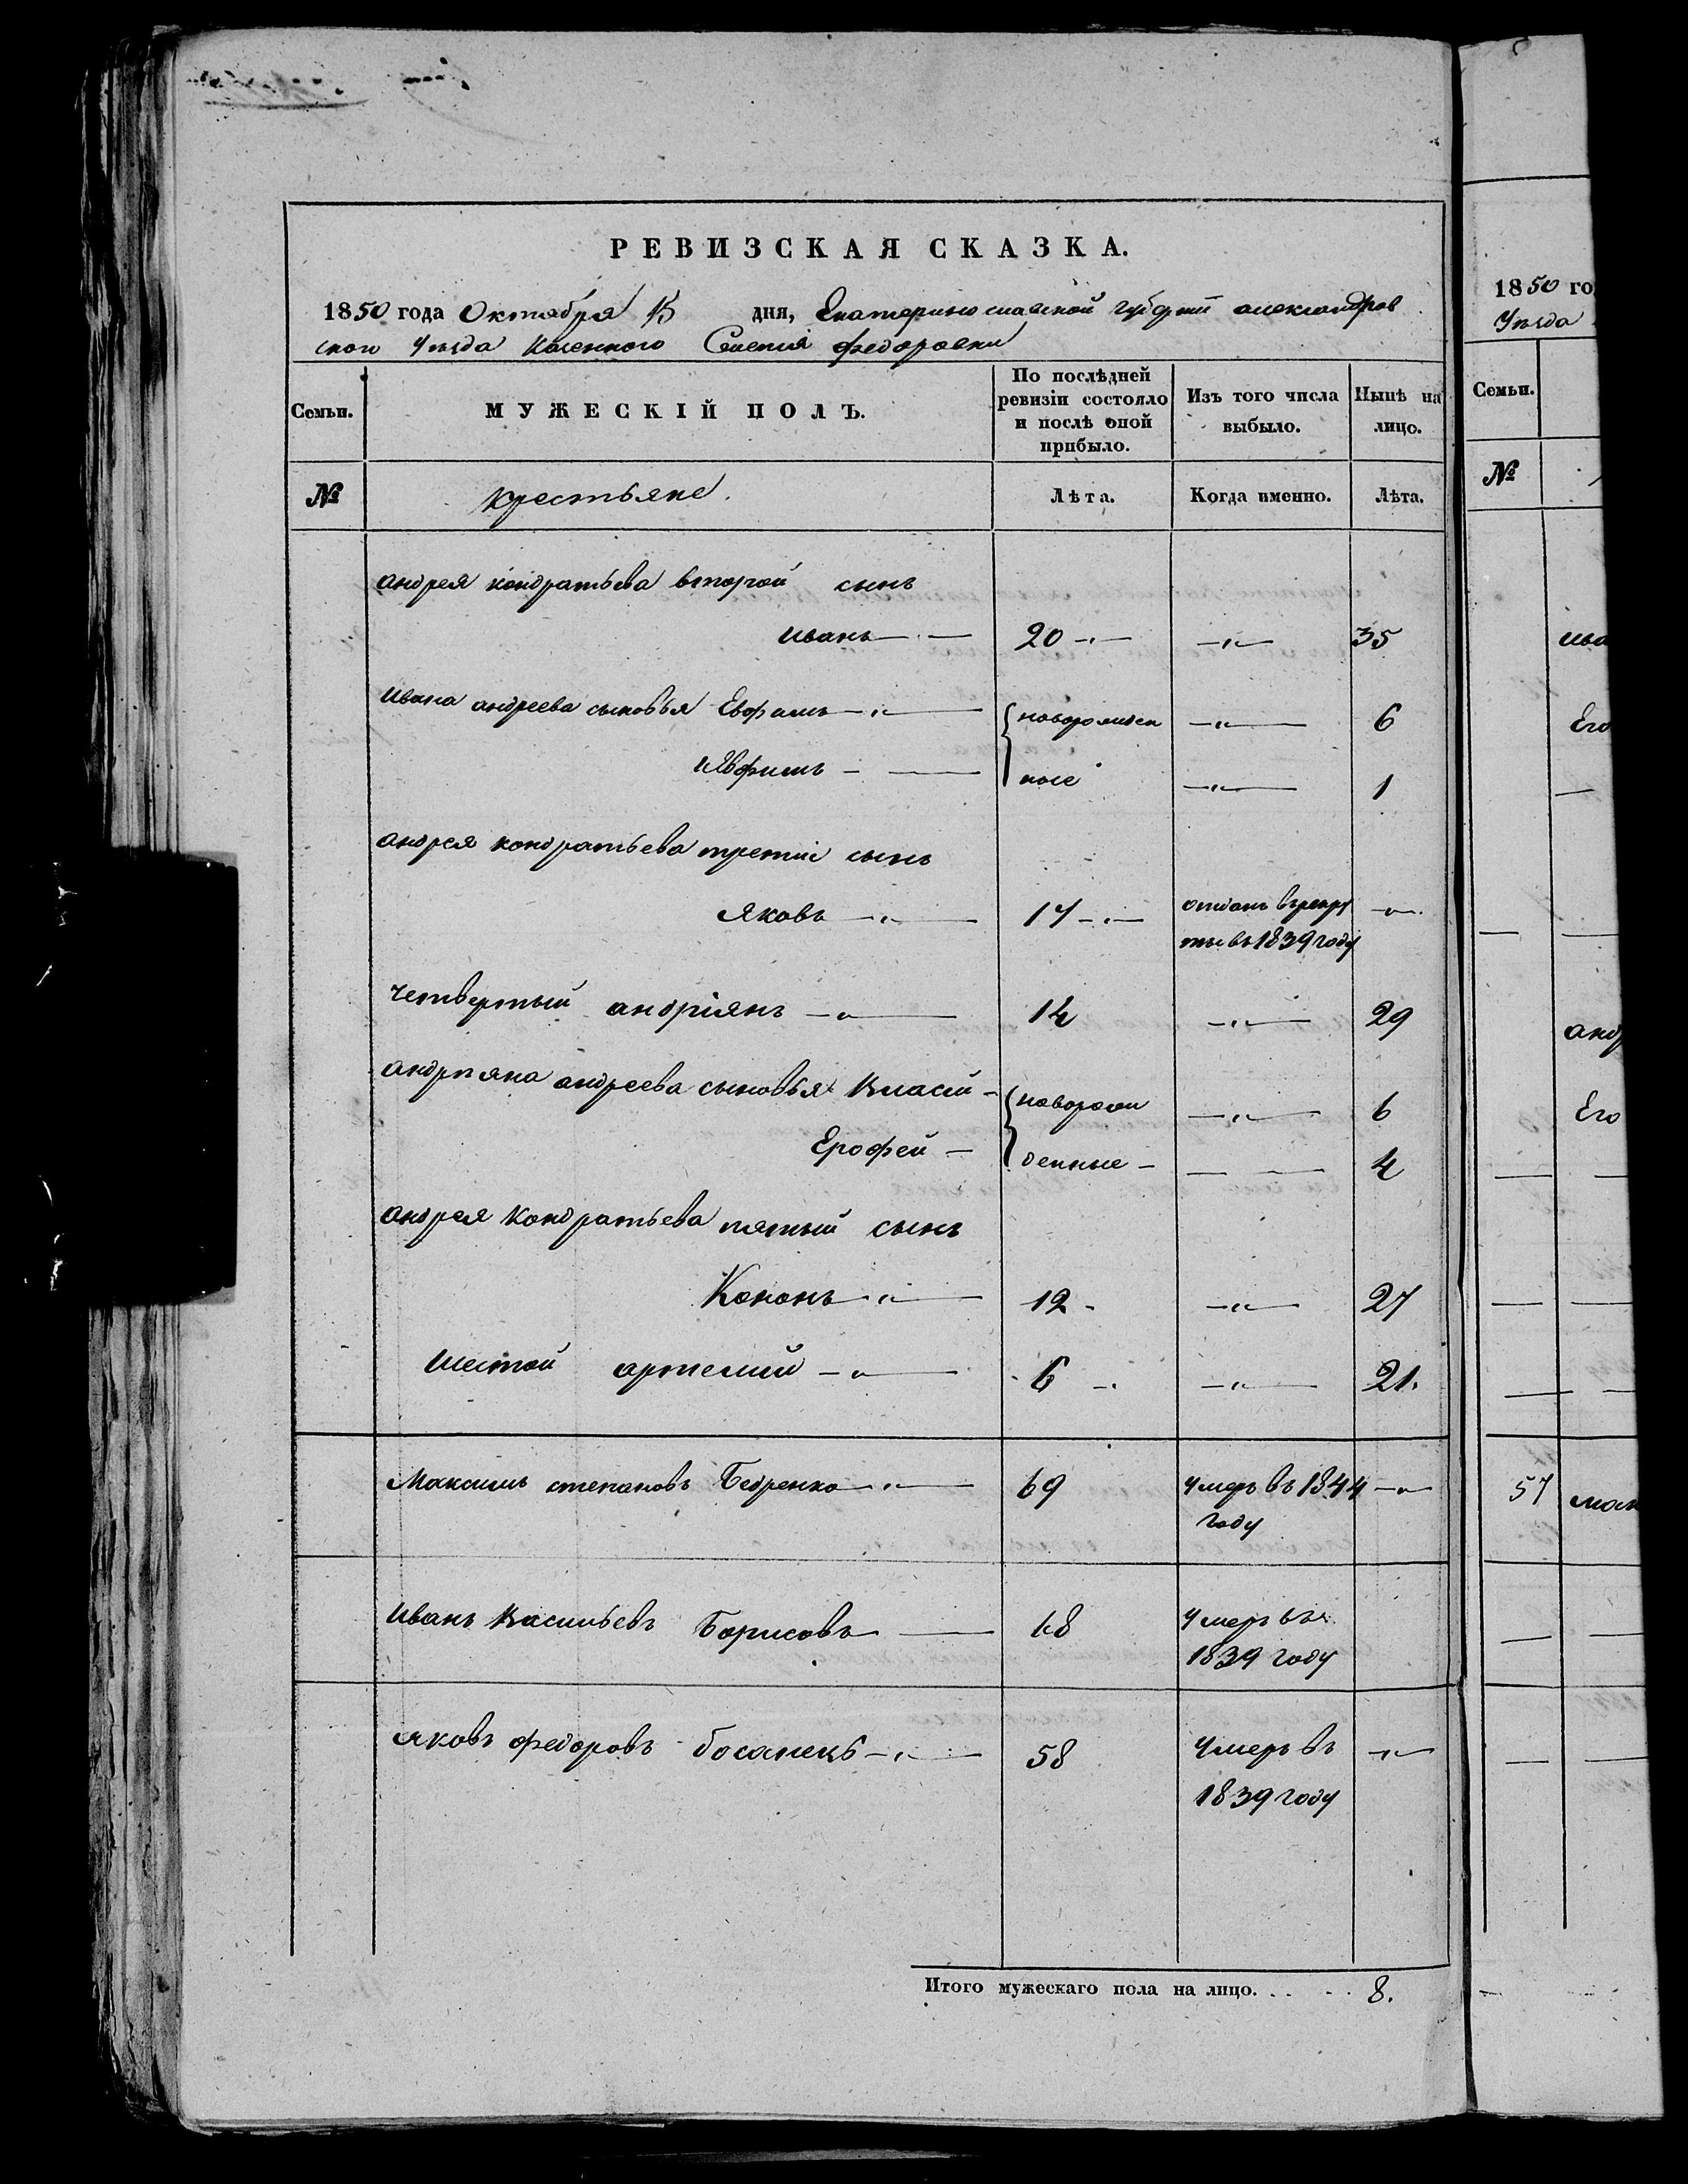 РЕВИЗСКАЯ СКАЗКА.
1850 года Октября 15 дня, Екатеринославской губернии александров
ского Уезда Казенного Селения федоровки
Семьи.
МУЖЕСКІЙ ПОЛЪ.
По послѣдней ревизіи состояло и послѣ оной прибыло.
Изъ того числа выбыло.
Нынѣ на лицо.
№ крестьяне. Лѣта. Когда именно. Лѣта.
андрея кондратьева второй сынъ
иванъ 20 35
ивана андреева сыновья Ефрамъ новорожден 6
Ефимъ ные 1
андрея кондратьева третий сынъ
яковъ 17 отданъ врекру
ты въ 1839 году
четвертый андріянъ 14 29
андрияна андреева сыновья Власий новорож 6
Ерофей денные 4
андрея кондратьева пятый сынъ
Кононъ 12 27
шестой артемий 6 21.
Максимъ степановъ Бедренко 69 умеръ въ 1844
году
иванъ Васильевъ Борисовъ 68 умеръ въ
1839 году
яковъ федоровъ 58 умеръ въ
1839 году
Итого мужескаго пола на лицо. 8.
1850 го
Уезда
Семьи.
№
ива
Его
анд
Его
57 мак